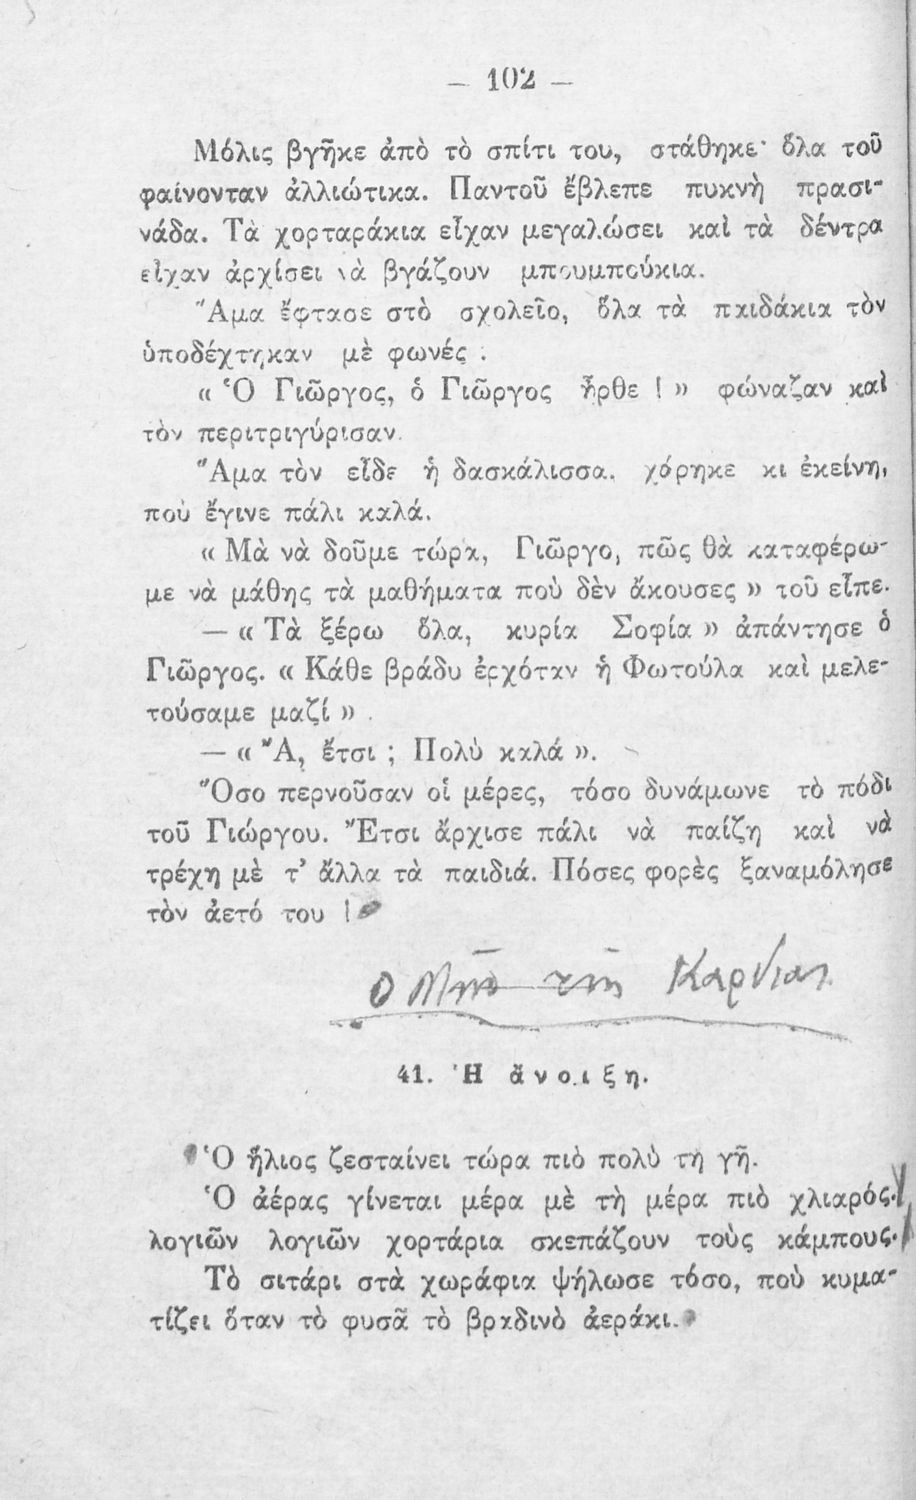 — 102 —
Μόλις βγῆκε ἀπὸ τὸ σπίτι του, στάθηκε· ὅλα τοῦ
φαίνονταν ἀλλιώτικα. Παντοῦ ἔβλεπε πυκνὴ πρασι-
νάδα. Τὰ χορταράκια εἶχαν μεγαλώσει καὶ τὰ δέντρα
εἶχαν ἀρχίσει νὰ βγάζουν μπουμπούκια.
Ἅμα ἔφτασε στὸ σχολεῖο, ὅλα τὰ παιδάκια τὸν
ὑποδέχτηκαν μὲ φωνές :
« Ὁ Γιῶργος, ὁ Γιῶργος ἦρθε ! » φώναζαν καὶ
τὸν περιτριγύρισαν.
Ἅμα τὸν εἶδε ἡ δασκάλισσα, χάρηκε κι ἐκείνη,
ποὺ ἔγινε πάλι καλά.
« Μὰ νὰ δοῦμε τώρα, Γιῶργο, πῶς θὰ καταφέρω-
με νὰ μάθης τὰ μαθήματα ποὺ δὲν ἄκουσες » τοῦ εἶπε.
— « Τὰ ξέρω ὅλα, κυρία Σοφία » ἀπάντησε ὁ
Γιῶργος. « Κάθε βράδυ ἐρχόταν ἡ Φωτούλα καὶ μελε-
τούσαμε μαζί » .
— « Ἄ, ἔτσι ; Πολὺ καλά ».
Ὅσο περνοῦσαν οἱ μέρες, τόσο δυνάμωνε τὸ πόδι
τοῦ Γιώργου. Ἔτσι ἄρχισε πάλι νὰ παίζη καὶ νὰ
τρέχη μὲ τ’ ἄλλα τὰ παιδιά. Πόσες φορὲς ξαναμόλησε
τὸν ἀετό του !
41. Ἡ ἄνοιξη.
Ὁ ἥλιος ζεσταίνει τώρα πιὸ πολὺ τὴ γῆ.
Ὁ ἀέρας γίνεται μέρα μὲ τὴ μέρα πιὸ χλιαρός.
λογιῶν λογιῶν χορτάρια σκεπάζουν τοὺς κάμπους.
Τὸ σιτάρι στὰ χωράφια ψήλωσε τόσο, ποὺ κυμα-
τίζει ὅταν τὸ φυσᾶ τὸ βραδινὸ ἀεράκι.